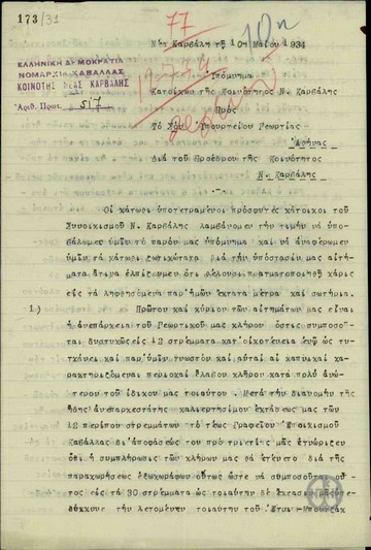 173/31
77
10η
Νέα Καρβάλη τῇ 10ῃ Μαΐου 1934
ΕΛΛΗΝΙΚΗ ΔΗΜΟΚΡΑΤΙΑ
ΝΟΜΑΡΧΙΑ ΚΑΒΑΛΛΑΣ
ΚΟΙΝΟΤΗΣ ΝΕΑΣ ΚΑΡΒΑΛΗΣ
Ἀριθ. Πρωτ. 517
Ὑπόμνημα
Κατοίκων τῆς Κοινότητος Ν. Καρβάλης
Πρὸς
Τὸ Σὸν Ὑπουργεῖον Γεωργίας
Ἀθήνας
Διὰ τοῦ Προέδρου τῆς Κοινότητος
Ν. Καρβάλης
Οἱ κάτωθι ὑποτεταμένοι πρόσφυγες κάτοικοι τοῦ
Συνοικισμοῦ Ν. Καρβάλης λαμβάνομεν τὴν τιμὴν νὰ ὑπο-
βάλωμεν ὑμῖν τὸ παρὸν μας ὑπόμνημα καὶ νὰ ἀναφέρωμεν
ὑμῖν τὰ κάτωθι ζωτικώτατα διὰ τὴν ὑπόστασίν μας αἰτήμα-
τα ἅτινα ἐλπίζωμεν ὅτι θέλουσι πραγματοποιηθῇ χάρις
εἰς τὰ ληφθησόμενα παρ' ὑμῶν ἔκτατα μέτρα καὶ σωτήρια.
1.) Πρῶτον καὶ κύριον τῶν αἰτημάτων μας εἶναι
ἡ ἀνεπάρκεια τοῦ Γεωργικοῦ μας κλήρου ὅστις συμποσοῦ-
ται δυστυχῶς εἰς 12 στρέμματα κατ' οἰκογένεια ἐνῷ ὡς τυ-
γχάνει καὶ παρ' ὑμῖν γνωστὸν καὶ αὗται αἱ καπνικαὶ χα-
ρακτηριζόμεναι περιοχαὶ ἔλαβον κλῆρον κατὰ πολὺ ἀνώ-
τερον τοῦ ἰδικοῦ μας τοιούτου. Μετὰ τὴν διανομὴν τῆς
ἤδη ἀνεπαρκεστάτης καλλιεργησίμου ἐκτάσεώς μας τῶν
12 περίπου στρεμμάτων τὸ τέως Γραφεῖον Ἐποικισμοῦ
Καβάλλας δι' ἀποφάσεώς του πρὸ τριετίας μᾶς ἐγνώριζεν
ὅτι ἡ συμπλήρωσις τῶν κλήρων μας θὰ ἐγένετο διὰ τῆς
παραχωρήσεως
εἰς τὰ 30 στρέμματα ὡς τοιαύτην δὲ ἔκτασιν
τὴν λεγομένην τοιαύτην τοῦ